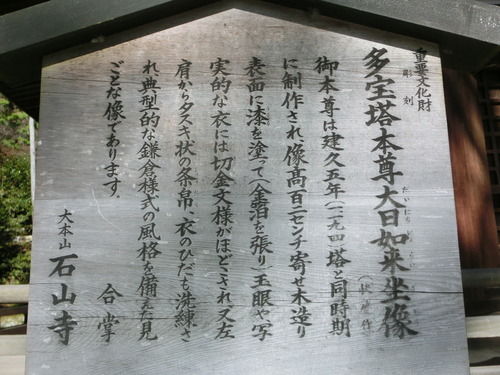 重要文化財
彫刻
多宝塔本尊大日如来坐像
だいにち
御本尊は建久五年(一一九四)塔と同時期
に制作され像高百二センチ寄せ木造り
表面に漆を塗って(金泊を張り)玉眼や写
実的な衣には切金文様がほどこされ又左
肩からタスキ状の条帛、衣のひだも洗練さ
れ、典型的な鎌倉様式の風格を備えた見
ごとな像であります。
合掌
大本山
石山寺